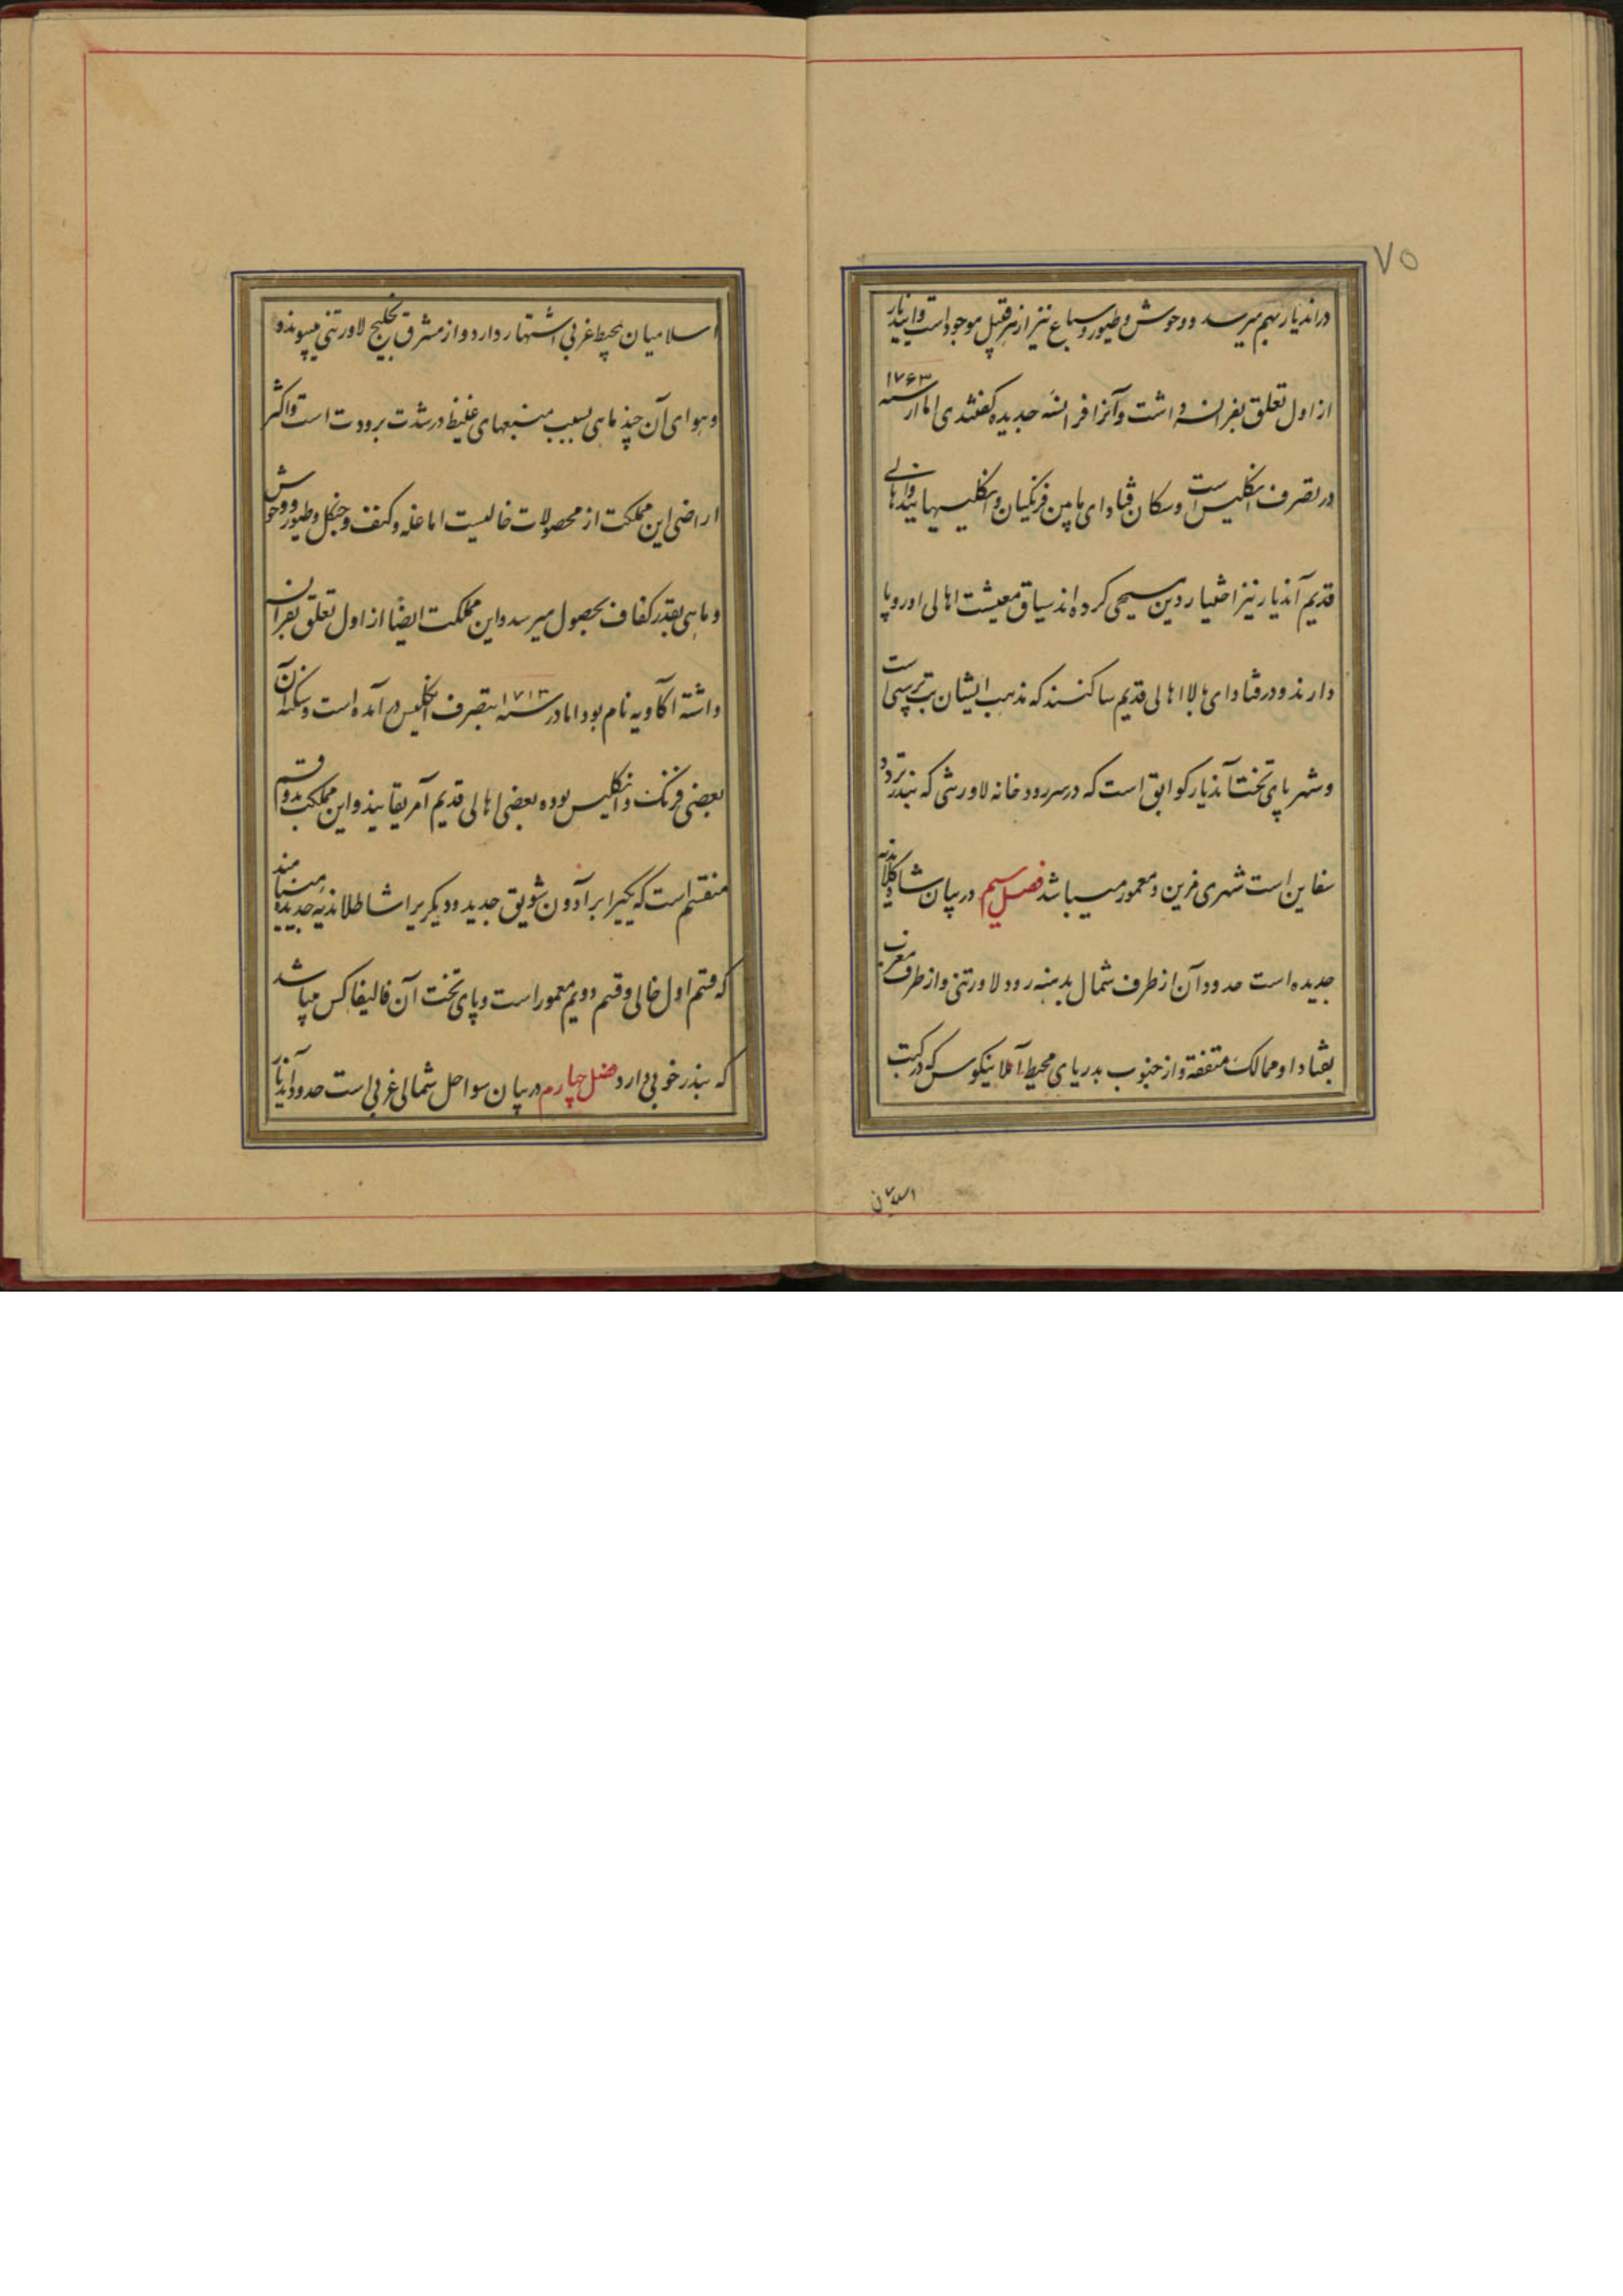 ۷۵
در اندیار بهم میرسد و وحوش و طیور و سباع نیز از هر قبیل موجود است و اندیار
از اول تعلق بفرانسه داشت و آنرا فرانسه جدیده گفتندی اما از سنه ۱۷۶۳
در تصرف انگلیس است و سکان قنادای پایین فرنگیان و انگلیسهایند و اهالی
قدیم آندیار نیز اختیار دین مسیحی کرده اند سیاق معیشت اهالی اوروپا
دارند و در قنادای بالا اهالی قدیم ساکنند که مذهب ایشان بت پرستی است
و شهر پای تخت آندیار کوابق است که در سر رودخانه لاورنتی که بندر تردد
سفاین است شهری مزین و معمور میباشد فصل سیم در بیان
جدیده است حدود آن از طرف شمال بدهنه رود لاورتنی و از طرف مغرب
بقنادا و ممالک متفقه و از جنوب بدریای محیط آتلانتیکوس که در کتب
اسلامیان
اسلامیان بمحیط غربی اشتهار دارد و از مشرق بخلیج لاورتنی میپیوندد
و هوای آن چند ماهی بسبب میغهای غلیظ در شدت برودت است و اکثر
اراضی این مملکت از محصولات خالیست اما غله و کنف و جنگل و طیور و وحوش
و ماهی بقدر کفاف بحصول میرسد و این مملکت ایضا از اول تعلق بفرانسه
داشته آکادیه نام بود اما در سنه ۱۷۱۳ بتصرف انگلیس در آمده است و سکنه آن
بعضی فرنگ و انگلیس بوده بعضی اهالی قدیم آمریقایند و این مملکت بدو قسم
منقسم است که یکیرا برآدون شویق جدید و دیگریرا شاطلاندیه جدیده مینامند
که قسم اول خالی و قسم دویم معمور است و پای تخت آن فالیفاکس میباشد
که بندر خوبی دارد فصل چهارم در بیان سواحل شمالی غربی است حدود اندیار